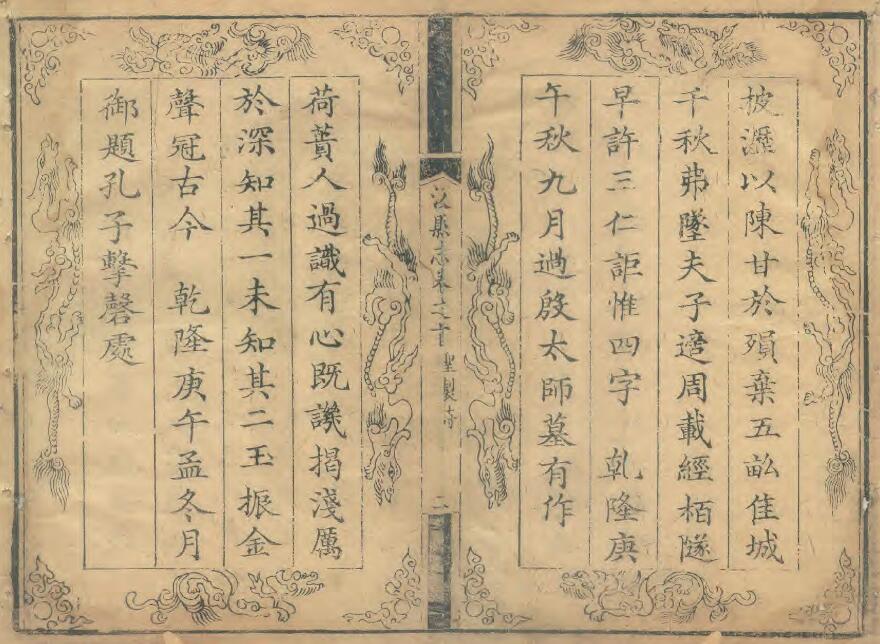 披瀝以陳甘於殞棄五畆佳城
千秋弗墜夫子適周載經栢隧
早許三仁詎惟四字 乾隆庚
午秋九月過殷太師墓有作
汲縣志卷之首 聖製詩 二
荷蕢人過識有心既譏揭淺厲
於深知其一未知其二玉振金
聲冠古今 乾隆庚午孟冬月
御題孔子擊磬處